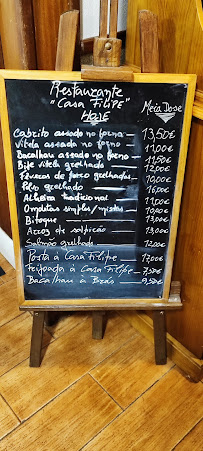 Restaurante
"Casa Filipe"
HOJE
Meia Dose
Cabrito assado no forno — 13,50€
Vitela assada no forno — 11,00€
Bacalhau assado no forno — 11,50€
Bife vitela grelhado 12,00€
Fêveras de porco grelhadas 10,00€
Polvo grelhado 16,00€
Alheira tradicional 11,00€
Omeletes simples/mistas 10,00€
Bitoque 13,00€
Arroz de salpicão 13,00€
Salmão grelhado 12,00€
Posta à Casa Filipe — 17,00€
Feijoada à Casa Filipe — 7,50€
Bacalhau à Brás — 9,50€